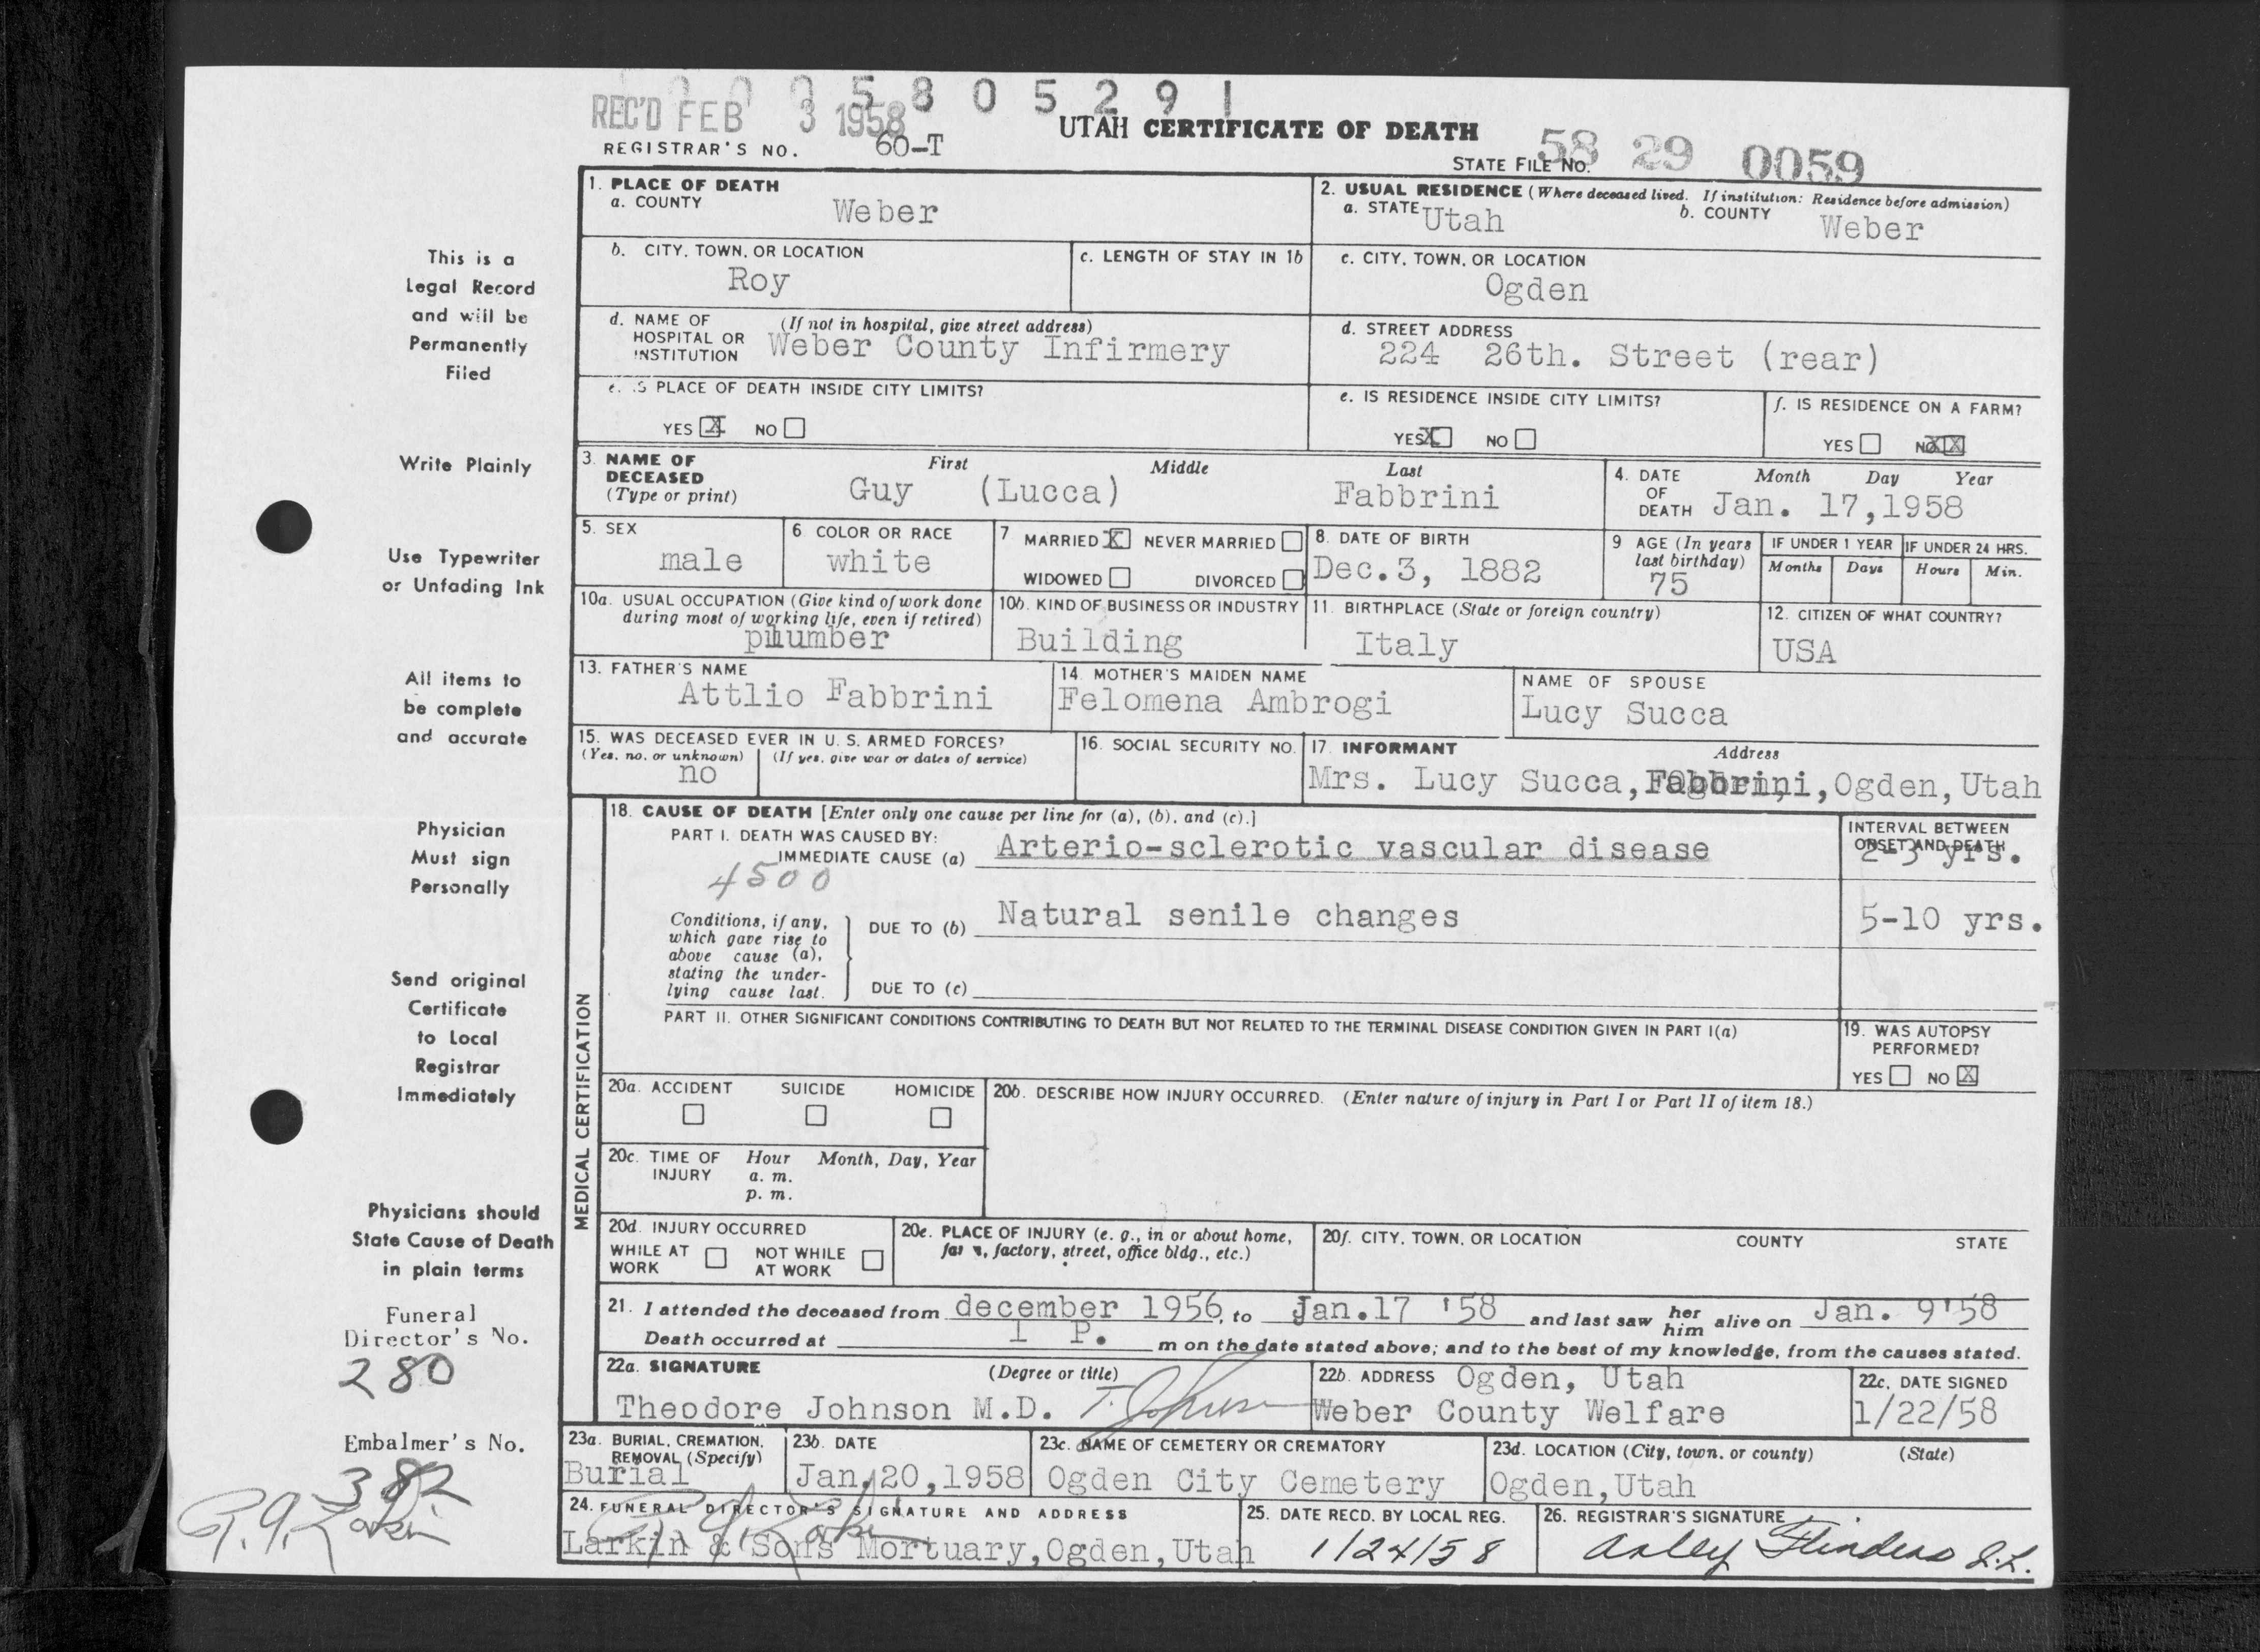 0 0 0 5 8 0 5 2 9 1
REC'D FEB 3 1958
UTAH CERTIFICATE OF DEATH
REGISTRAR'S NO. 60-T
STATE FILE NO. 58 29 0059
This is a
Legal Record
and will be
Permanently
Filed
Write Plainly
Use Typewriter
or Unfading Ink
All items to
be complete
and accurate
Physician
Must sign
Personally
Send original
Certificate
to Local
Registrar
Immediately
Physicians should
State Cause of Death
in plain terms
Funeral
Director's No.
280
Embalmer's No.
382
1. PLACE OF DEATH
a. COUNTY Weber
2. USUAL RESIDENCE (Where deceased lived. If institution: Residence before admission)
a. STATE Utah b. COUNTY Weber
b. CITY, TOWN, OR LOCATION
Roy
c. LENGTH OF STAY IN 1b
c. CITY, TOWN, OR LOCATION
Ogden
d. NAME OF (If not in hospital, give street address)
HOSPITAL OR
INSTITUTION Weber County Infirmery
d. STREET ADDRESS
224 26th. Street (rear)
e. IS PLACE OF DEATH INSIDE CITY LIMITS?
YES X NO
e. IS RESIDENCE INSIDE CITY LIMITS?
YES X NO
f. IS RESIDENCE ON A FARM?
YES NO XX
3. NAME OF First Middle Last
DECEASED
(Type or print) Guy (Lucca) Fabbrini
4. DATE Month Day Year
OF
DEATH Jan. 17,1958
5. SEX
male
6 COLOR OR RACE
white
7 MARRIED X NEVER MARRIED
WIDOWED DIVORCED
8. DATE OF BIRTH
Dec.3, 1882
9 AGE (In years
last birthday)
75
IF UNDER 1 YEAR
Months Days
IF UNDER 24 HRS.
Hours Min.
10a. USUAL OCCUPATION (Give kind of work done
during most of working life, even if retired)
plumber
10b. KIND OF BUSINESS OR INDUSTRY
Building
11. BIRTHPLACE (State or foreign country)
Italy
12. CITIZEN OF WHAT COUNTRY?
USA
13. FATHER'S NAME
Attlio Fabbrini
14. MOTHER'S MAIDEN NAME
Felomena Ambrogi
NAME OF SPOUSE
Lucy Succa
15. WAS DECEASED EVER IN U. S. ARMED FORCES?
(Yes, no, or unknown) (If yes, give war or dates of service)
no
16. SOCIAL SECURITY NO.
17. INFORMANT Address
Mrs. Lucy Succa, Fabbrini, Ogden, Utah
MEDICAL CERTIFICATION
18. CAUSE OF DEATH [Enter only one cause per line for (a), (b), and (c).]
PART I. DEATH WAS CAUSED BY:
IMMEDIATE CAUSE (a) Arterio-sclerotic vascular disease
4500
INTERVAL BETWEEN
ONSET AND DEATH
2-3 yrs.
Conditions, if any,
which gave rise to
above cause (a),
stating the under-
lying cause last.
DUE TO (b) Natural senile changes
5-10 yrs.
DUE TO (c)
PART II. OTHER SIGNIFICANT CONDITIONS CONTRIBUTING TO DEATH BUT NOT RELATED TO THE TERMINAL DISEASE CONDITION GIVEN IN PART I(a)
19. WAS AUTOPSY
PERFORMED?
YES NO X
20a. ACCIDENT SUICIDE HOMICIDE
20b. DESCRIBE HOW INJURY OCCURRED. (Enter nature of injury in Part I or Part II of item 18.)
20c. TIME OF Hour Month, Day, Year
INJURY a. m.
p. m.
20d. INJURY OCCURRED
WHILE AT WORK NOT WHILE AT WORK
20e. PLACE OF INJURY (e. g., in or about home,
farm, factory, street, office bldg., etc.)
20f. CITY, TOWN, OR LOCATION COUNTY STATE
21. I attended the deceased from december 1956, to Jan.17 '58 and last saw her him alive on Jan. 9'58
Death occurred at 1 P. m on the date stated above; and to the best of my knowledge, from the causes stated.
22a. SIGNATURE (Degree or title)
Theodore Johnson M.D. T. Johnson
22b. ADDRESS Ogden, Utah
Weber County Welfare
22c. DATE SIGNED
1/22/58
23a. BURIAL, CREMATION,
REMOVAL (Specify)
Burial
23b. DATE
Jan. 20,1958
23c. NAME OF CEMETERY OR CREMATORY
Ogden City Cemetery
23d. LOCATION (City, town, or county) (State)
Ogden, Utah
24. FUNERAL DIRECTOR'S SIGNATURE AND ADDRESS
Larkin & Sons Mortuary, Ogden, Utah
25. DATE RECD. BY LOCAL REG.
1/24/58
26. REGISTRAR'S SIGNATURE
Arley Flinders